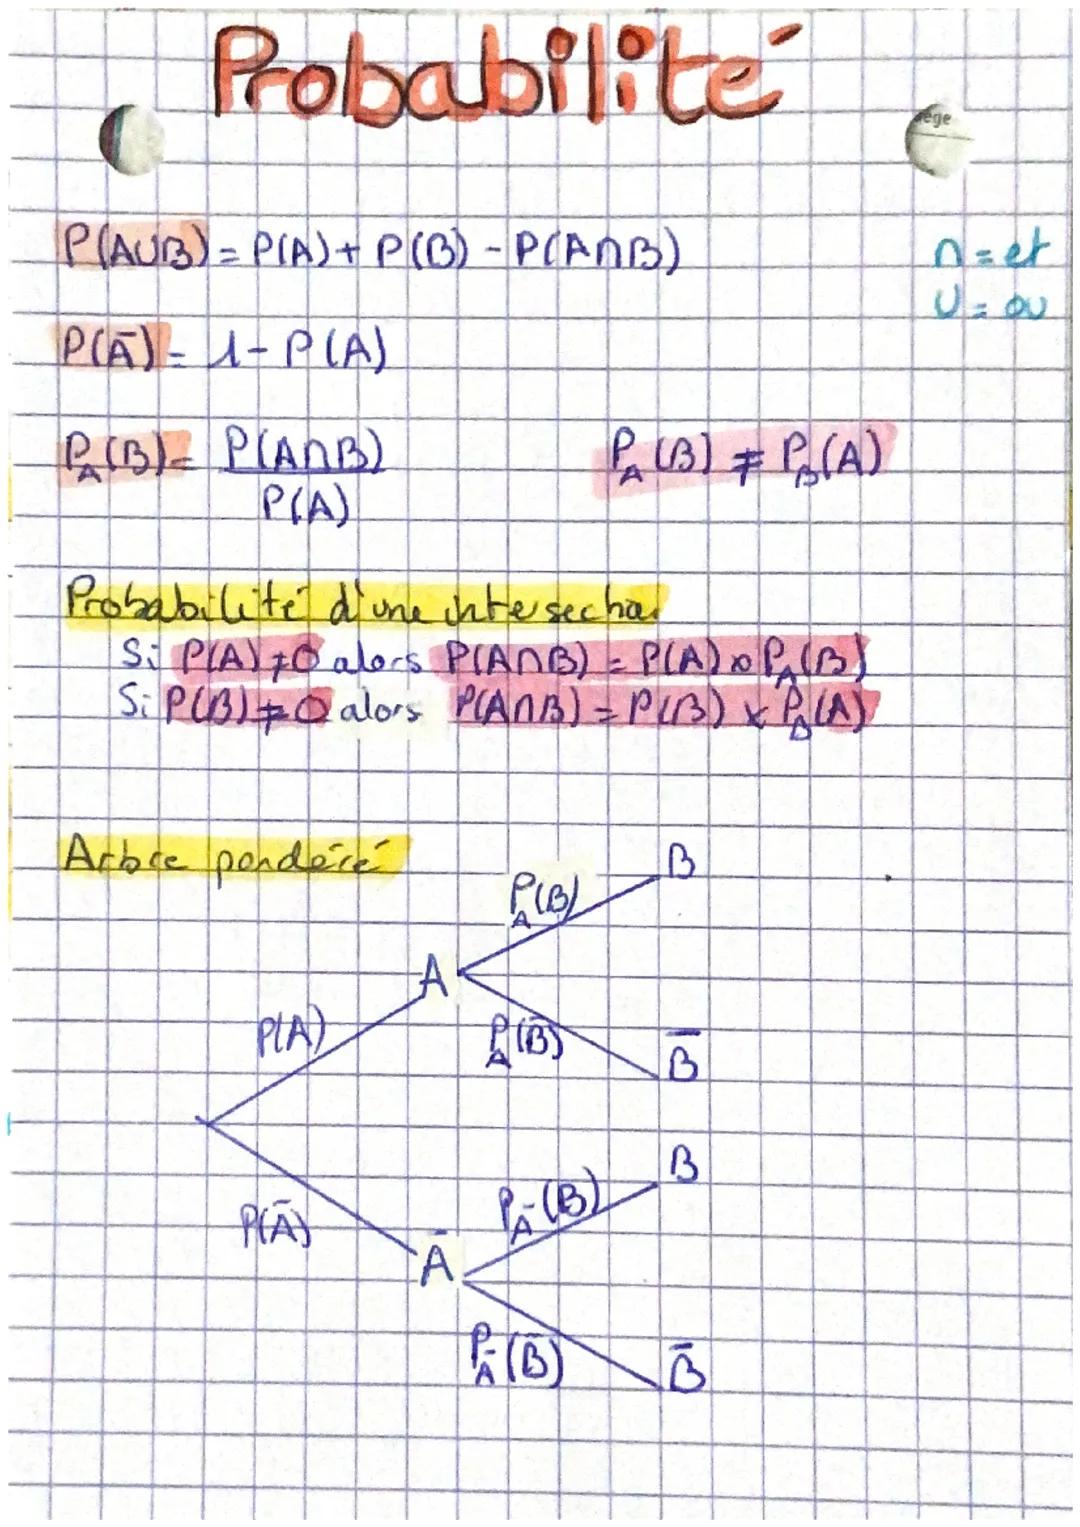 Probabilité
ège
P(A∪B) = P(A) + P(B) - P(A∩B)
∩ = et
∪ = ou
P(Ā) = 1 - P(A)
P_A(B) = P(A∩B)
P(A)
P_A(B) ≠ P_B(A)
Probabilité d'une intersection
Si P(A) ≠ 0 alors P(A∩B) = P(A) x P_A(B)
Si P(B) ≠ 0 alors P(A∩B) = P(B) x P_B(A)
Arbre pondéré
B
P_A(B)
A
P(A)
P_A(B̄)
B̄
B
P_Ā(B)
P(Ā)
Ā
P_Ā(B̄)
B̄